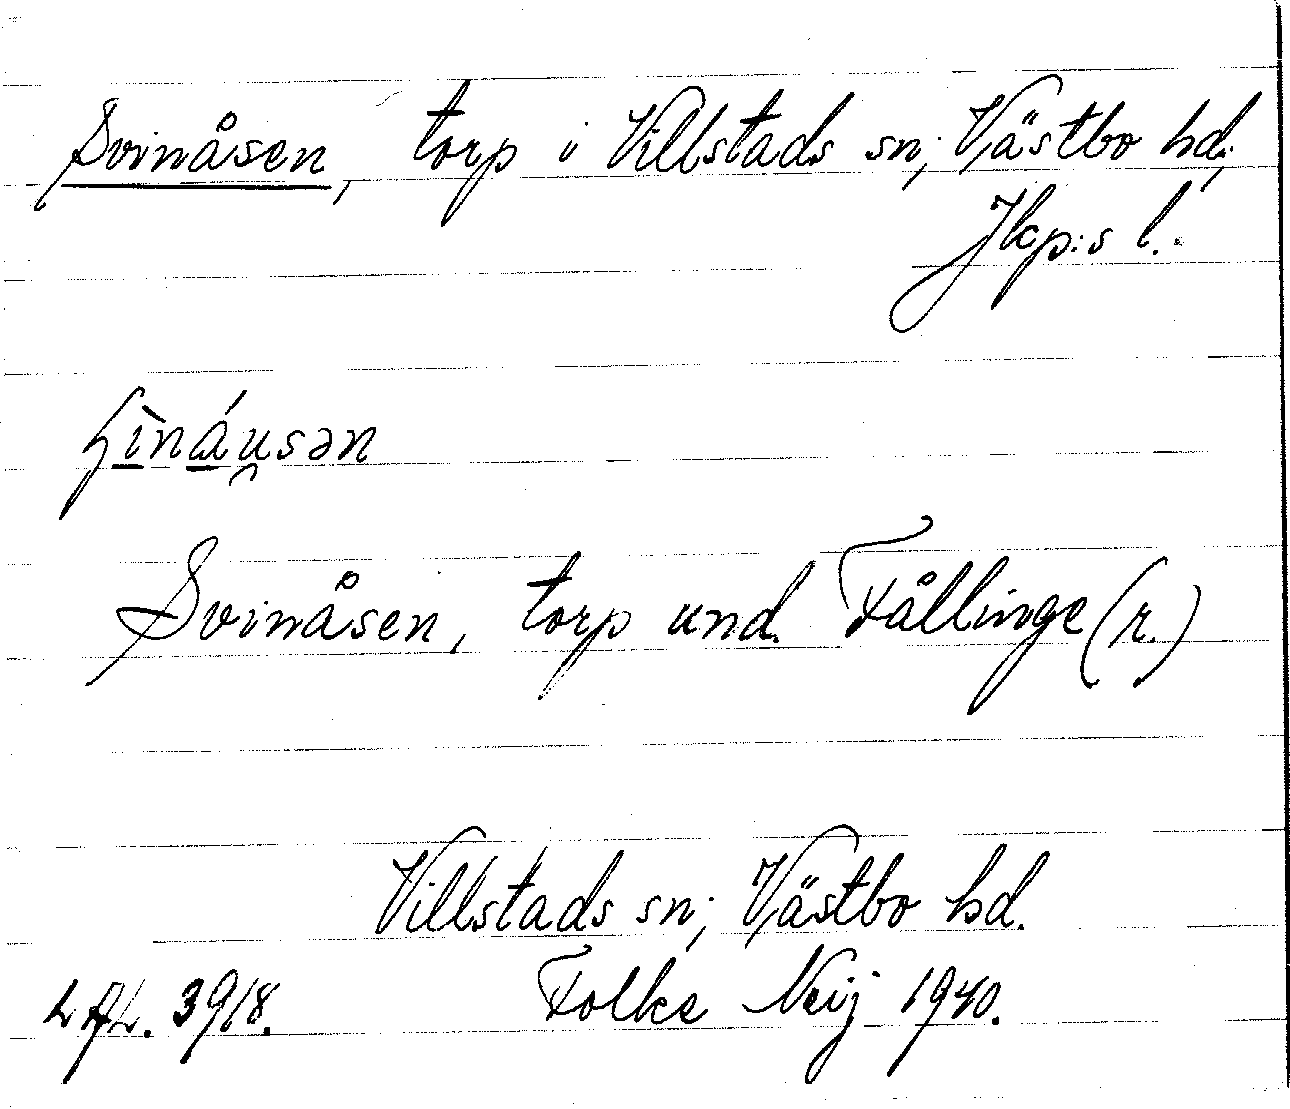 Svinåsen, torp i Villstads sn; Västbo hd;
Jkp:s l.
Svinåsen, torp und. Fållinge (r.)
Villstads sn; Västbo hd.
Folke Neij 1940.
LAL. 3918.